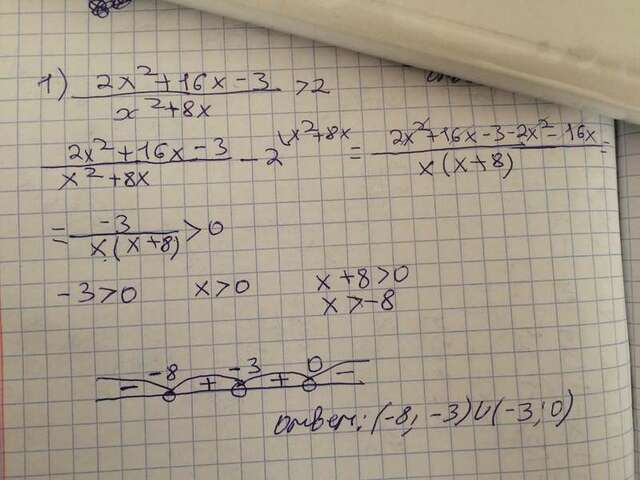 1) (2x²+16x-3)/(x²+8x) >2
(2x²+16x-3)/(x²+8x) - 2 (x²+8x = (2x²+16x-3-2x²-16x)/(x(x+8)) =
= -3/(x(x+8)) >0
-3>0 x>0 x+8>0
x>-8
- -8 + -3 + 0 -
Ответ: (-8; -3)∪(-3; 0)